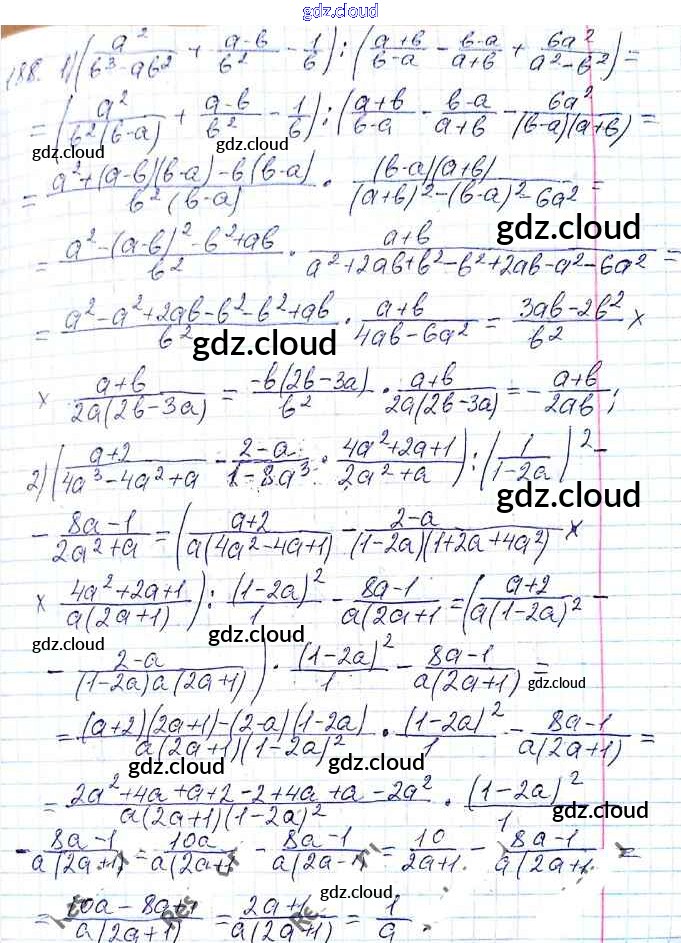 gdz.cloud
188. 1) (a²/(b³-ab²) + (a-b)/b² - 1/b) : ((a+b)/(b-a) - (b-a)/(a+b) + 6a²/(a²-b²)) =
= (a²/(b²(b-a)) + (a-b)/b² - 1/b) : ((a+b)/(b-a) - (b-a)/(a+b) - 6a²/((b-a)(a+b))) =
gdz.cloud gdz.cloud
= (a²+(a-b)(b-a)-b(b-a))/(b²(b-a)) · ((b-a)(a+b))/((a+b)²-(b-a)²-6a²) =
gdz.cloud
= (a²-(a-b)²-b²+ab)/b² · (a+b)/(a²+2ab+b²-b²+2ab-a²-6a²) =
= (a²-a²+2ab-b²-b²+ab)/b² · (a+b)/(4ab-6a²) = (3ab-2b²)/b² ×
gdz.cloud
× (a+b)/(2a(2b-3a)) = (-b(2b-3a))/b² · (a+b)/(2a(2b-3a)) = -(a+b)/(2ab);
gdz.cloud
2) ((a+2)/(4a³-4a²+a) - (2-a)/(1-8a³) · (4a²+2a+1)/(2a²+a)) : (1/(1-2a))² -
gdz.cloud
- (8a-1)/(2a²+a) = ((a+2)/(a(4a²-4a+1)) - (2-a)/((1-2a)(1+2a+4a²)) ×
× (4a²+2a+1)/(a(2a+1))) : (1-2a)²/1 - (8a-1)/(a(2a+1) = ((a+2)/(a(1-2a)² -
gdz.cloud gdz.cloud
- (2-a)/((1-2a)a(2a+1))) · (1-2a)²/1 - (8a-1)/(a(2a+1)) =
gdz.cloud
= ((a+2)(2a+1)-(2-a)(1-2a))/(a(2a+1)(1-2a)²) · (1-2a)²/1 - (8a-1)/(a(2a+1)) =
gdz.cloud gdz.cloud
= (2a²+4a+a+2-2+4a+a-2a²)/(a(2a+1)(1-2a)²) · (1-2a)²/1
gdz.cloud
- (8a-1)/(a(2a+1)) = 10a/(a(2a+1) - (8a-1)/(a(2a = 10/(2a+1) - (8a-1)/(a(2a+1 =
gdz.cloud
= (10a-8a+1)/(a(2a+1)) = (2a+1)/(a(2a+1)) = 1/a.